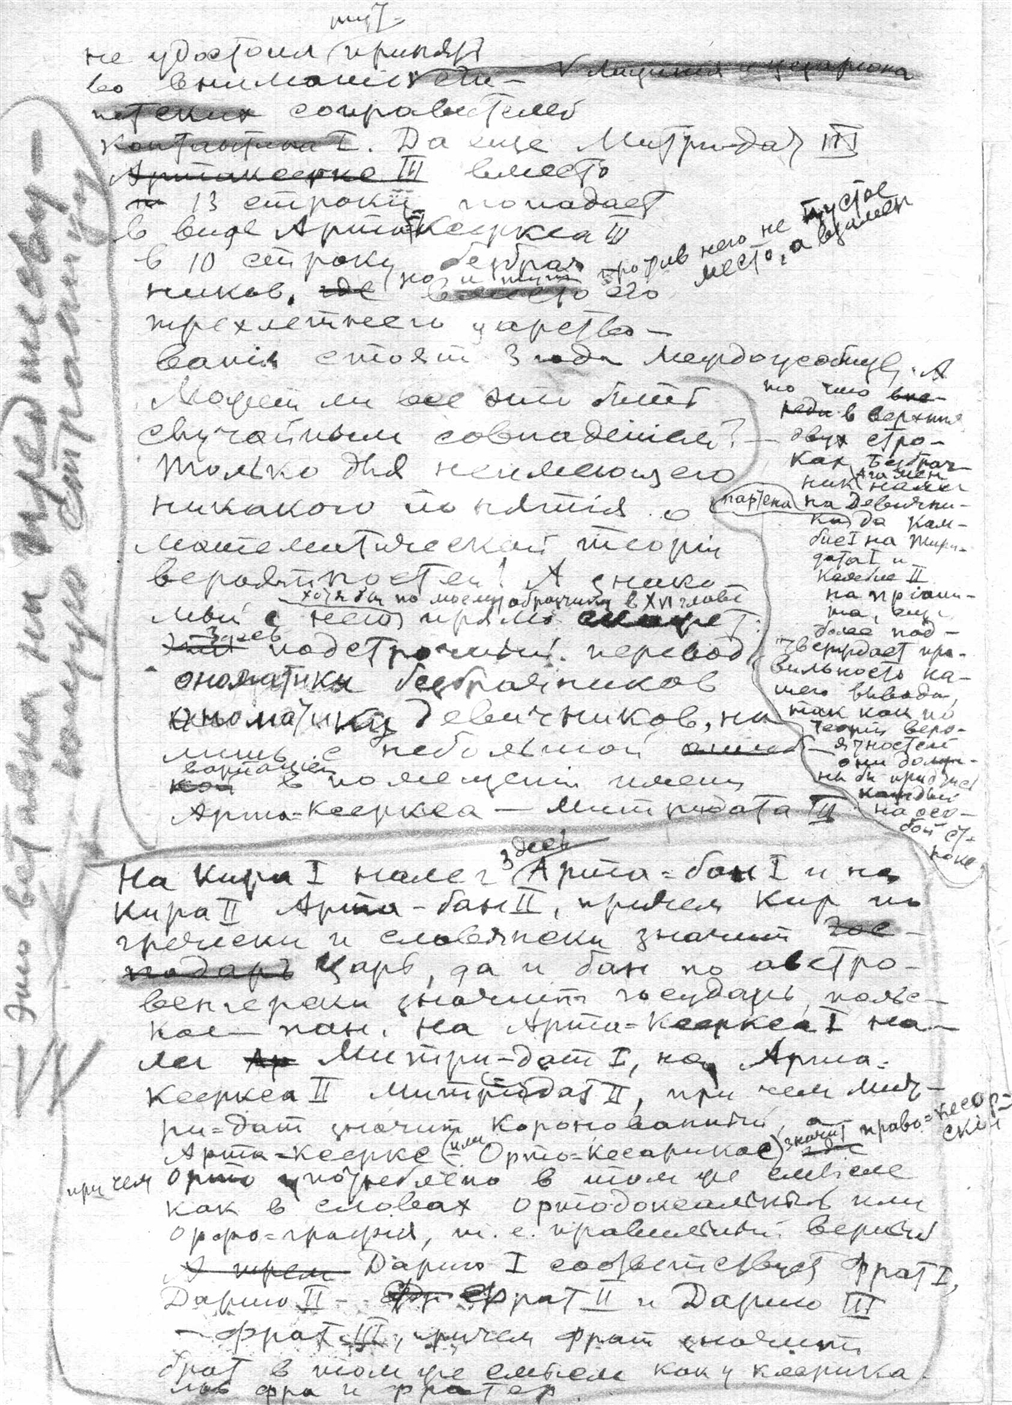 тут
не удостоил принять
во внимание
соправителей
Константина I. Да еще Митри-дат III
Арта-ксеркс III вместо
13 строки попадает
в виде Арта-Ксеркса III
в 10 строку безбрач-
ников, где но и тут вместо его
против него не пустое
место, а взамен
трехлетнего царство-
вания стоят 3 года междоусобиц. А
Может ли все это быть
случайным совпадением?
Только для неимеющего
никакого понятия о
математической теории
вероятностей! А знако-
хотя бы по моему образчику в XVI главе
мый с нею прямо скажет:
здесь подстрочный перевод
ономатики безбрачников
ономатику девичников, но
лишь с небольшой
вариацией
в помещении имени
Арта-Ксеркса — Митридата III
то что впе-
реди в верхних
двух стро-
ках Безбрач-
ник
налег
(партена) на Девични-
ка, да Кам-
биз I на Мири-
дата I и
Камбиз II
на Приапи-
та, еще
более под-
тверждает пра-
вильность на-
шего вывода,
так как по
теории веро-
ятностей
они долж-
ны бы придтись
каждый
на осо-
бой ст-
роке.
На Кира I налег здесь Арта-бан I и на
Кира II Арта-бан II, причем Кир по
гречески и славянски значит гос-
подарь царь, да и бан по австро-
венгерски значит государь, польс-
кое — пан. На Арта-Ксеркса I на-
лег Митри-дат I, на Арта-
ксеркса II Митридат II, при чем Мит-
ри-дат значит коронованный, а
Арта-Ксеркс (или Орто-Кесарикос) значит право-кесар-
ский
при чем орто употреблено в том же смысле
как в словах ортодоксальный или
орфо-графия, т. е. правильный, верный
А трем Дарию I соответствует Фрат I,
Дарию II — Фрат II и Дарию III
— Фрат III, причем фрат значит
брат в том же смысле как у клерика-
лов фра и фратер.
Это вставка на предъиду-
щую страницу